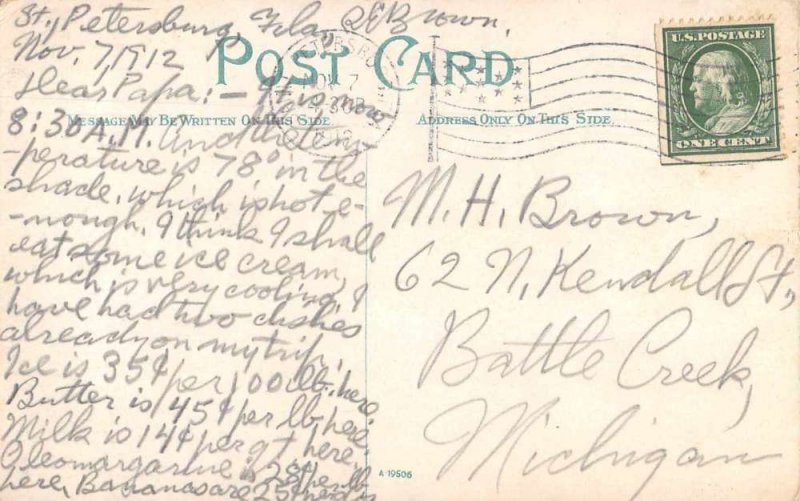 St. Petersburg, Fla, S E Brown.
Nov. 7, 1912
POST CARD
Dear Papa:— It is now
MESSAGE MAY BE WRITTEN ON THIS SIDE
8:30 A.M. And the tem-
-perature is 78° in the
shade, which is hot e-
-nough. I think I shall
eat some ice cream,
which is very cooling. I
have had two dishes
already on my trip.
Ice is 35¢ per 100 lb. here
Butter is 45¢ per lb. here
Milk is 14¢ per qt here,
Oleomargarine is 28¢ per lb
here, Bananas are 25¢
ADDRESS ONLY ON THIS SIDE
U.S. POSTAGE
ONE CENT
NOV 7
M. H. Brown,
62 N. Kendall St,
Battle Creek,
Michigan
A 19506